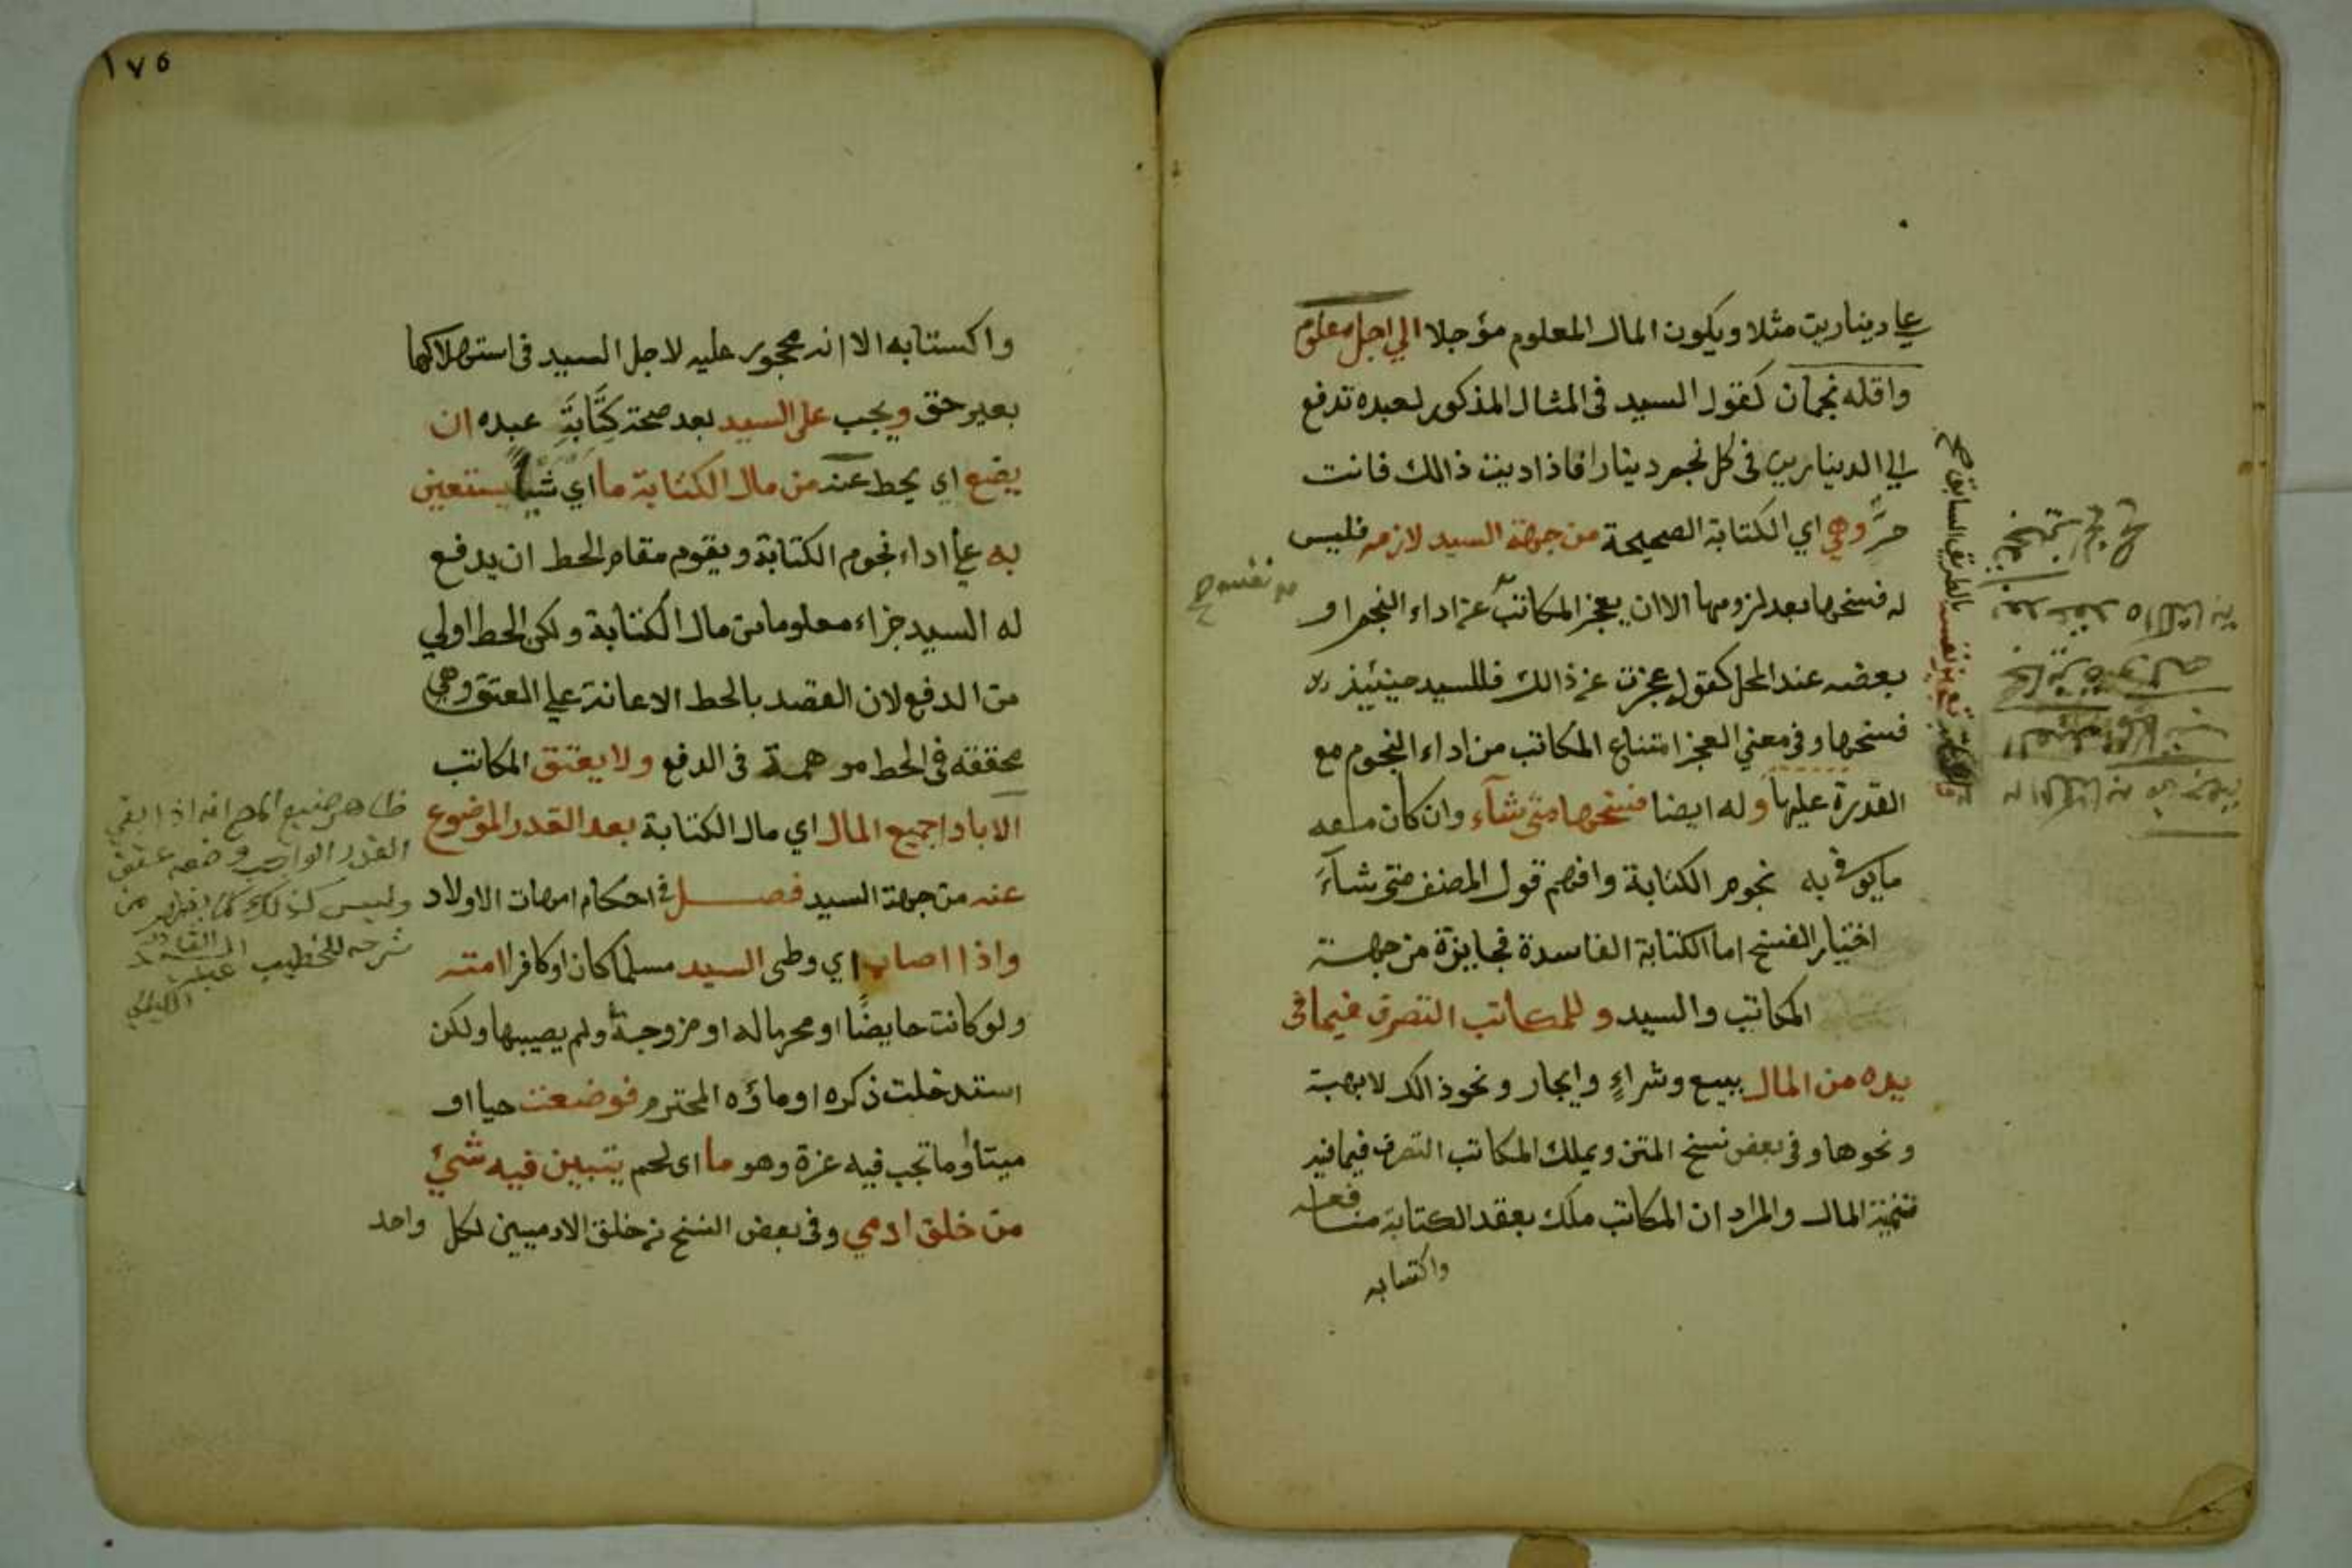 علي دينارين مثلا ويكون المال المعلوم مؤجلا الي اجل معلوم
واقله نجمان كقول السيد في المثال المذكور لعبده تدفع
الي الدينارين في كل نجم دينارا فاذا اديت ذالك فانت
حر وهي اي الكتابة الصحيحة من جهة السيد لازمه فليس
له فسخها بعد لزومها الا ان يعجز المكاتب عن اداء النجم او
بعضه عند المحل كقوله عجزت عن ذالك فللسيد حينئيذ
فسخها وفي معني العجز امتناع المكاتب من اداء النجوم مع
القدرة عليها وله ايضا فسخها متي شآء وان كان معه
ما يوفي به نجوم الكتابة وافهم قول المصنف متي شآء
اختيار الفسخ اما الكتابة الفاسدة فجايزة من جهة
المكاتب والسيد وللمكاتب التصرف فيما في
يده من المال ببيع وشراء وايجار ونحو ذالك لا بهبة
ونحوها وفي بعض نسخ المتن ويملك المكاتب التصرف فيما فيه
تنمية المال والمراد ان المكاتب ملك بعقد الكتابة منافعه
واكتسابه
بالطريق السابق صح
١٧٥
واكستابه الا انه محجور عليه لاجل السيد في استهلاكهما
بغير حق ويجب على السيد بعد صحة كتابة عبده ان
يضع اي يحط عنه من مال الكتابة ما اي شيا يستعين
به علي اداء نجوم الكتابة ويقوم مقام الحط ان يدفع
له السيد جزاء معلوما من مال الكتابة ولكن الحط اولي
من الدفع لان القصد بالحط الاعانة علي العتق وهي
محققه في الحط موهمة في الدفع ولا يعتق المكاتب
الا باداء جميع المال اي مال الكتابة بعد القدر الموضوع
عنه من جهة السيد فصل في احكام امهات الاولاد
واذا اصاب اي وطى السيد مسلما كان او كافرا امته
ولو كانت حايضا او محرما له او مزوجة ولم يصيبها ولكن
استدخلت ذكره او ماؤه المحترم فوضعت حيا او
ميتا او ما تجب فيه غرة وهو ما اى لحم يتبين فيه شئ
من خلق ادمي وفي بعض النسخ من خلق الادميين لكل واحد
ظاهر صنيع المص انه اذا بقي
القدر الواجب وضعه عتق
وليس كذلك كما يظهر من
شرحه للخطيب